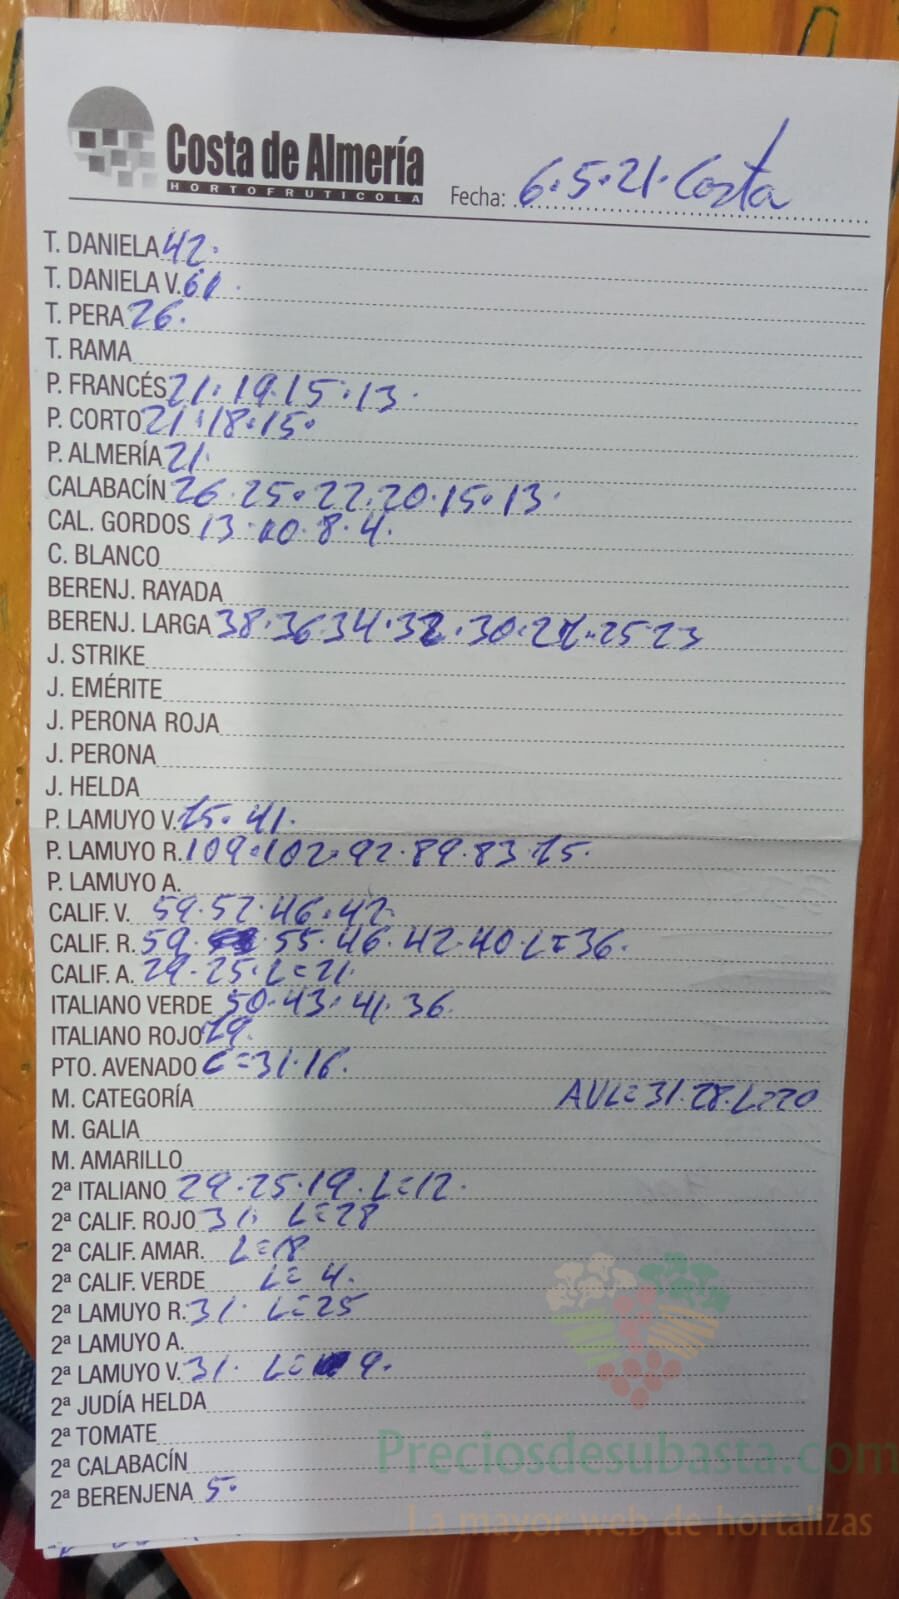 Costa de Almería
HORTOFRUTICOLA
Fecha: 6.5.21. Costa
T. DANIELA 42.
T. DANIELA V. 61.
T. PERA 26.
T. RAMA
P. FRANCÉS 21.19.15.13.
P. CORTO 21.18.15.
P. ALMERÍA 21.
CALABACÍN 26.25.22.20.15.13.
CAL. GORDOS 13.10.8.4.
C. BLANCO
BERENJ. RAYADA
BERENJ. LARGA 38.36.34.32.30. 25.23
J. STRIKE
J. EMÉRITE
J. PERONA ROJA
J. PERONA
J. HELDA
P. LAMUYO V. 75.41.
P. LAMUYO R. 109.102.92.89.83.75.
P. LAMUYO A.
CALIF. V. 59.52.46.42.
CALIF. R. 59. 55.46.42.40.L=36.
CALIF. A. 29.25.L=21.
ITALIANO VERDE 50.43.41.36.
ITALIANO ROJO
PTO. AVENADO C=31.16.
M. CATEGORÍA AVL=31.28.L=20
M. GALIA
M. AMARILLO
2ª ITALIANO 29.25.19.L=12.
2ª CALIF. ROJO 31. L=28
2ª CALIF. AMAR. L=18
2ª CALIF. VERDE L=4.
2ª LAMUYO R. 31. L=25
2ª LAMUYO A.
2ª LAMUYO V. 31. L= 9.
2ª JUDÍA HELDA
2ª TOMATE
2ª CALABACÍN
2ª BERENJENA 5.
Preciosdesubasta.com
La mayor web de hortalizas